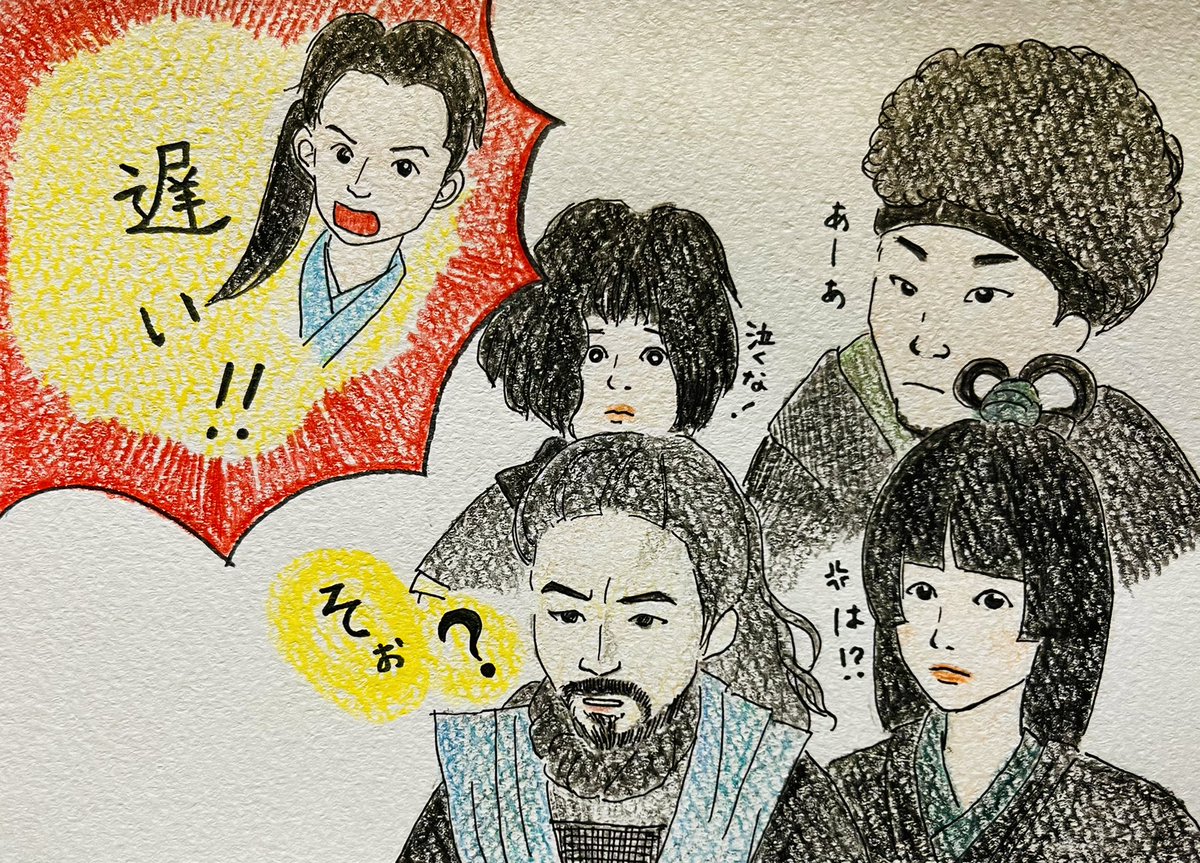 遅い!!
泣くな!
あーあ
そぉ?
は!?